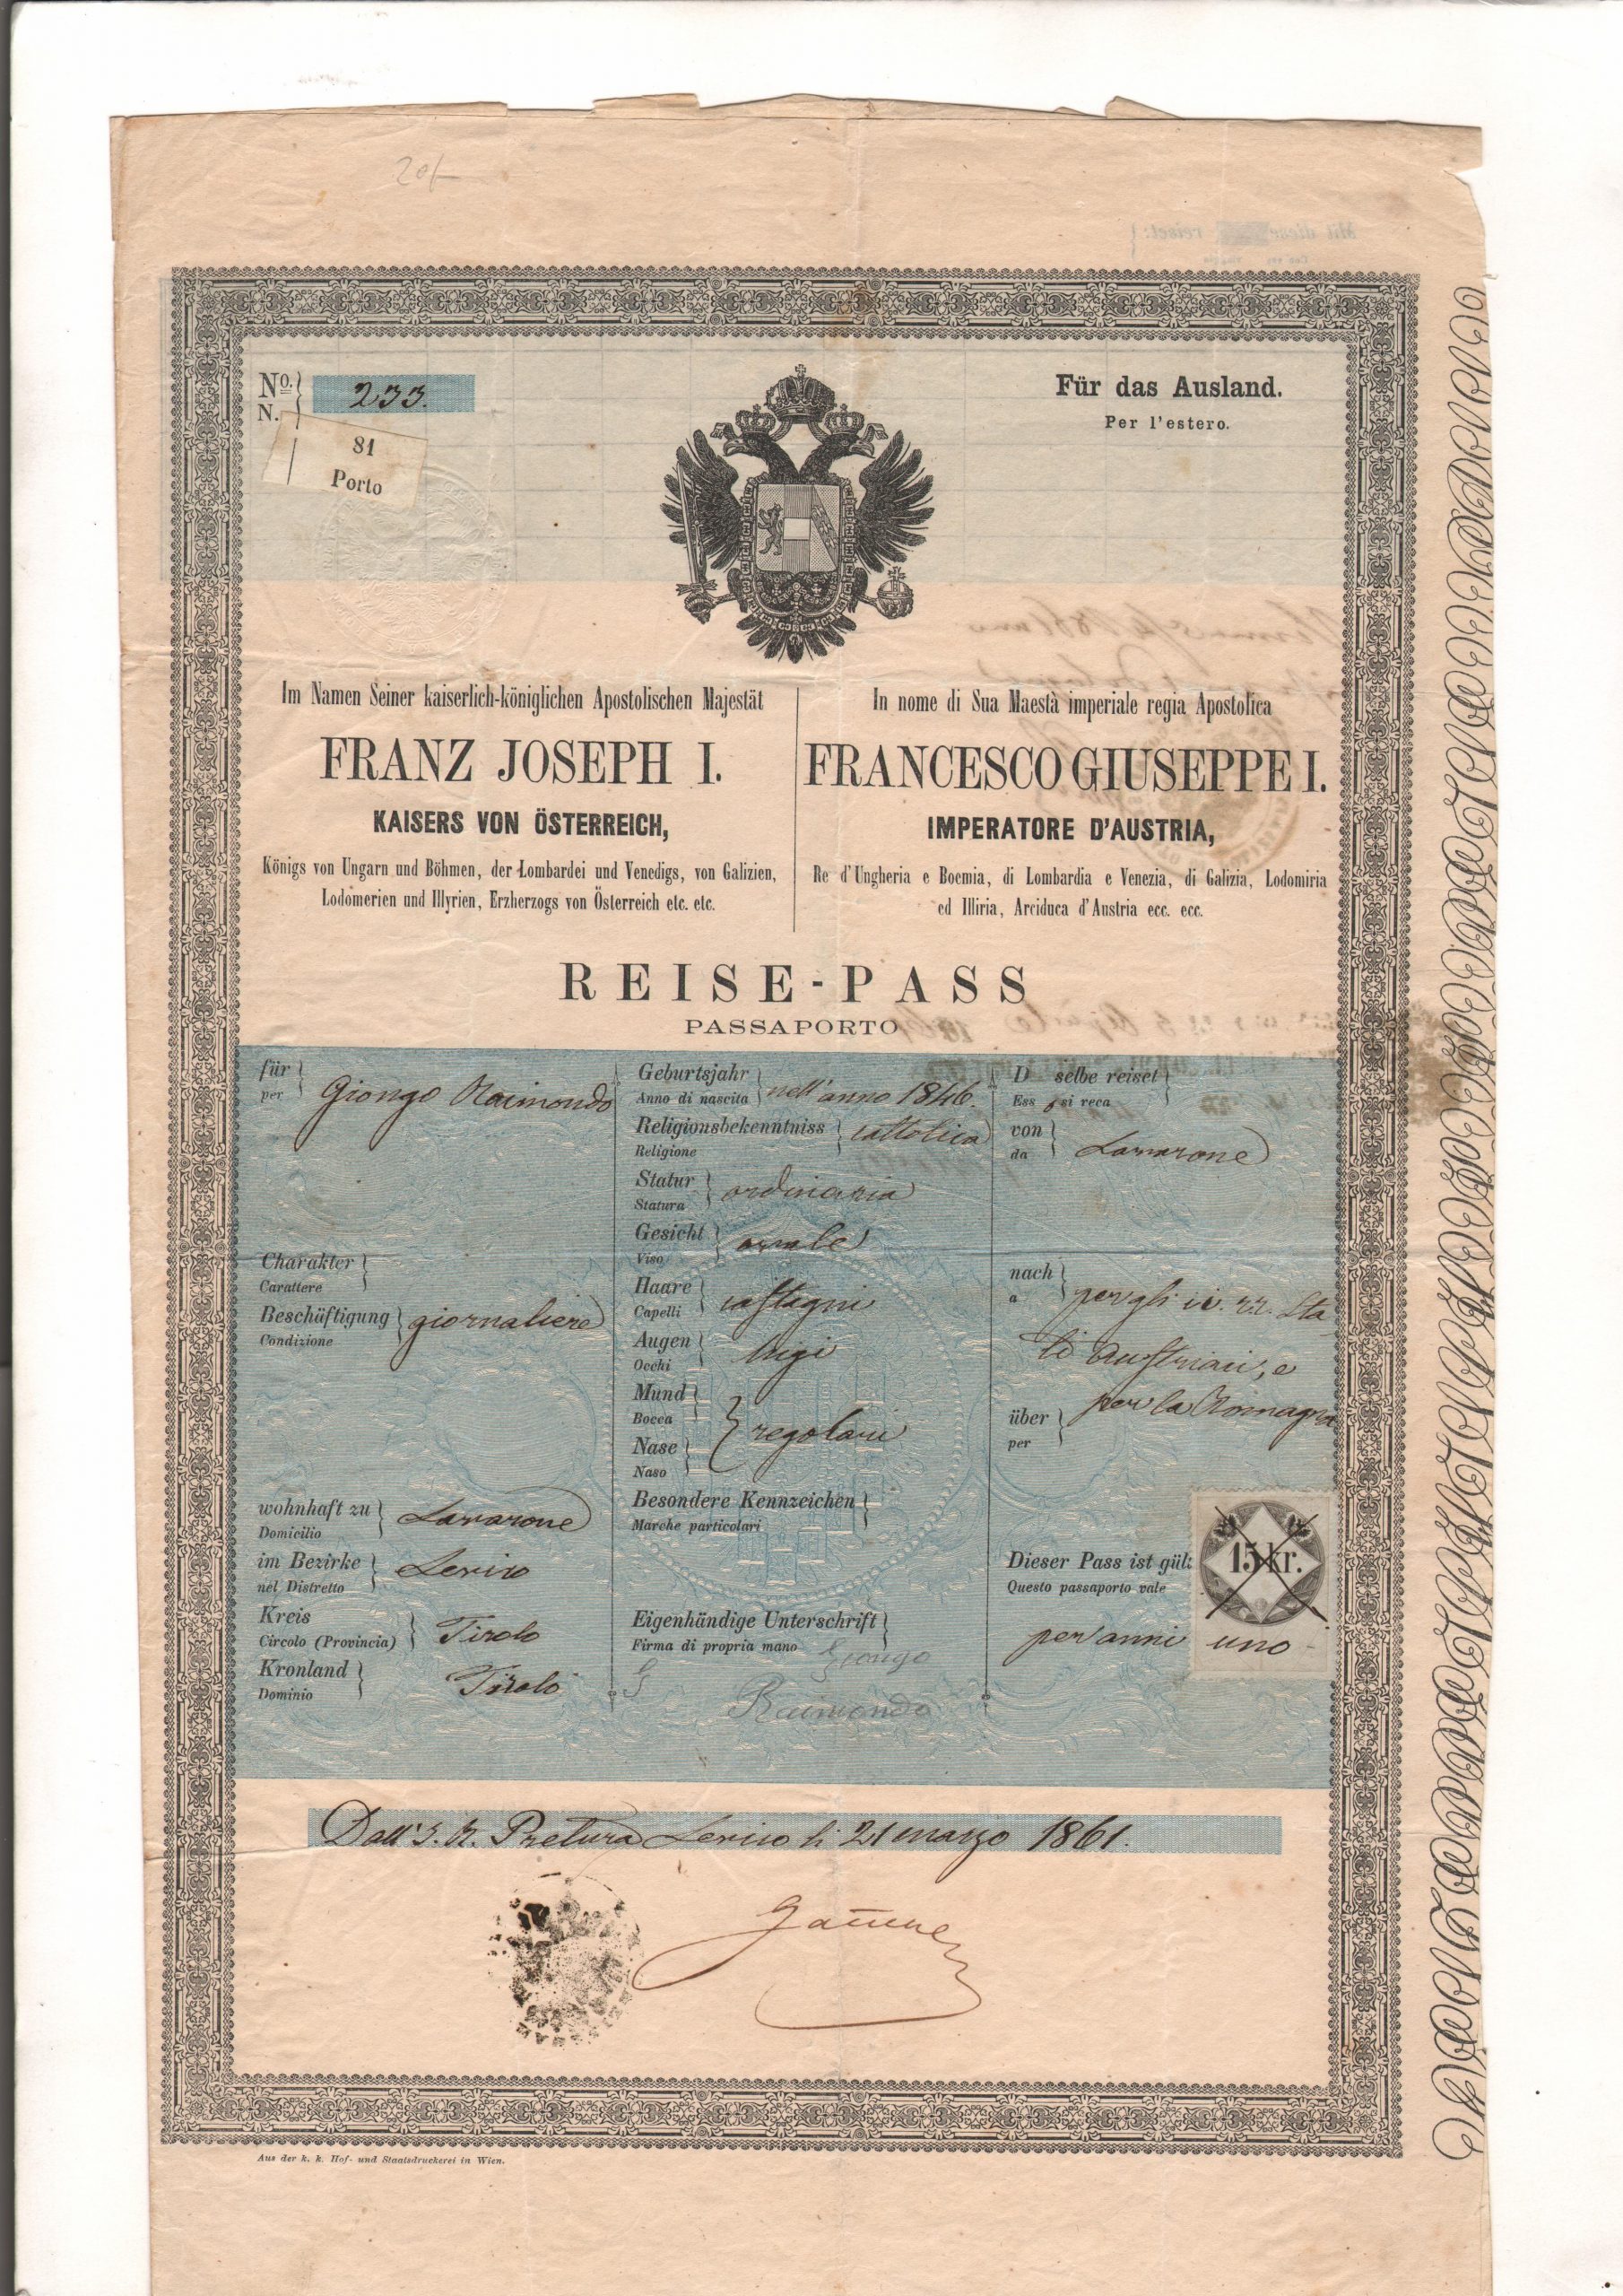 20/-
Für das Ausland.
Per l'estero.
Nº.
N.
233.
81
Porto
Im Namen Seiner kaiserlich-königlichen Apostolischen Majestät
FRANZ JOSEPH I.
KAISERS VON ÖSTERREICH,
Königs von Ungarn und Böhmen, der Lombardei und Venedigs, von Galizien,
Lodomerien und Illyrien, Erzherzogs von Österreich etc. etc.
In nome di Sua Maestà imperiale regia Apostolica
FRANCESCO GIUSEPPE I.
IMPERATORE D'AUSTRIA,
Re d'Ungheria e Boemia, di Lombardia e Venezia, di Galizia, Lodomiria
ed Illiria, Arciduca d'Austria ecc. ecc.
REISE-PASS
PASSAPORTO
für
per
Giongo Raimondo
Charakter
Carattere
Beschäftigung
Condizione
giornaliere
wohnhaft zu
Domicilio
Lavarone
im Bezirke
nel Distretto
Levico
Kreis
Circolo (Provincia)
Tirolo
Kronland
Dominio
Tirolo
Geburtsjahr
Anno di nascita
nell'anno 1846.
Religionsbekenntniss
Religione
cattolica
Statur
Statura
ordinaria
Gesicht
Viso
ovale
Haare
Capelli
castagni
Augen
Occhi
bigi
Mund
Bocca
Nase
Naso
regolari
Besondere Kennzeichen
Marche particolari
Eigenhändige Unterschrift
Firma di propria mano
Giongo
G
Raimondo
D selbe reiset
Ess o si reca
von
da
Lavarone
nach
a
per gli ii. rr. Sta
ti Austriaci, e
über
per
per la Romagna
Dieser Pass ist gül
Questo passaporto vale
15 kr.
per anni uno
Dall'I. R. Pretura Levico li 21 marzo 1861.
Aus der k. k. Hof- und Staatsdruckerei in Wien.